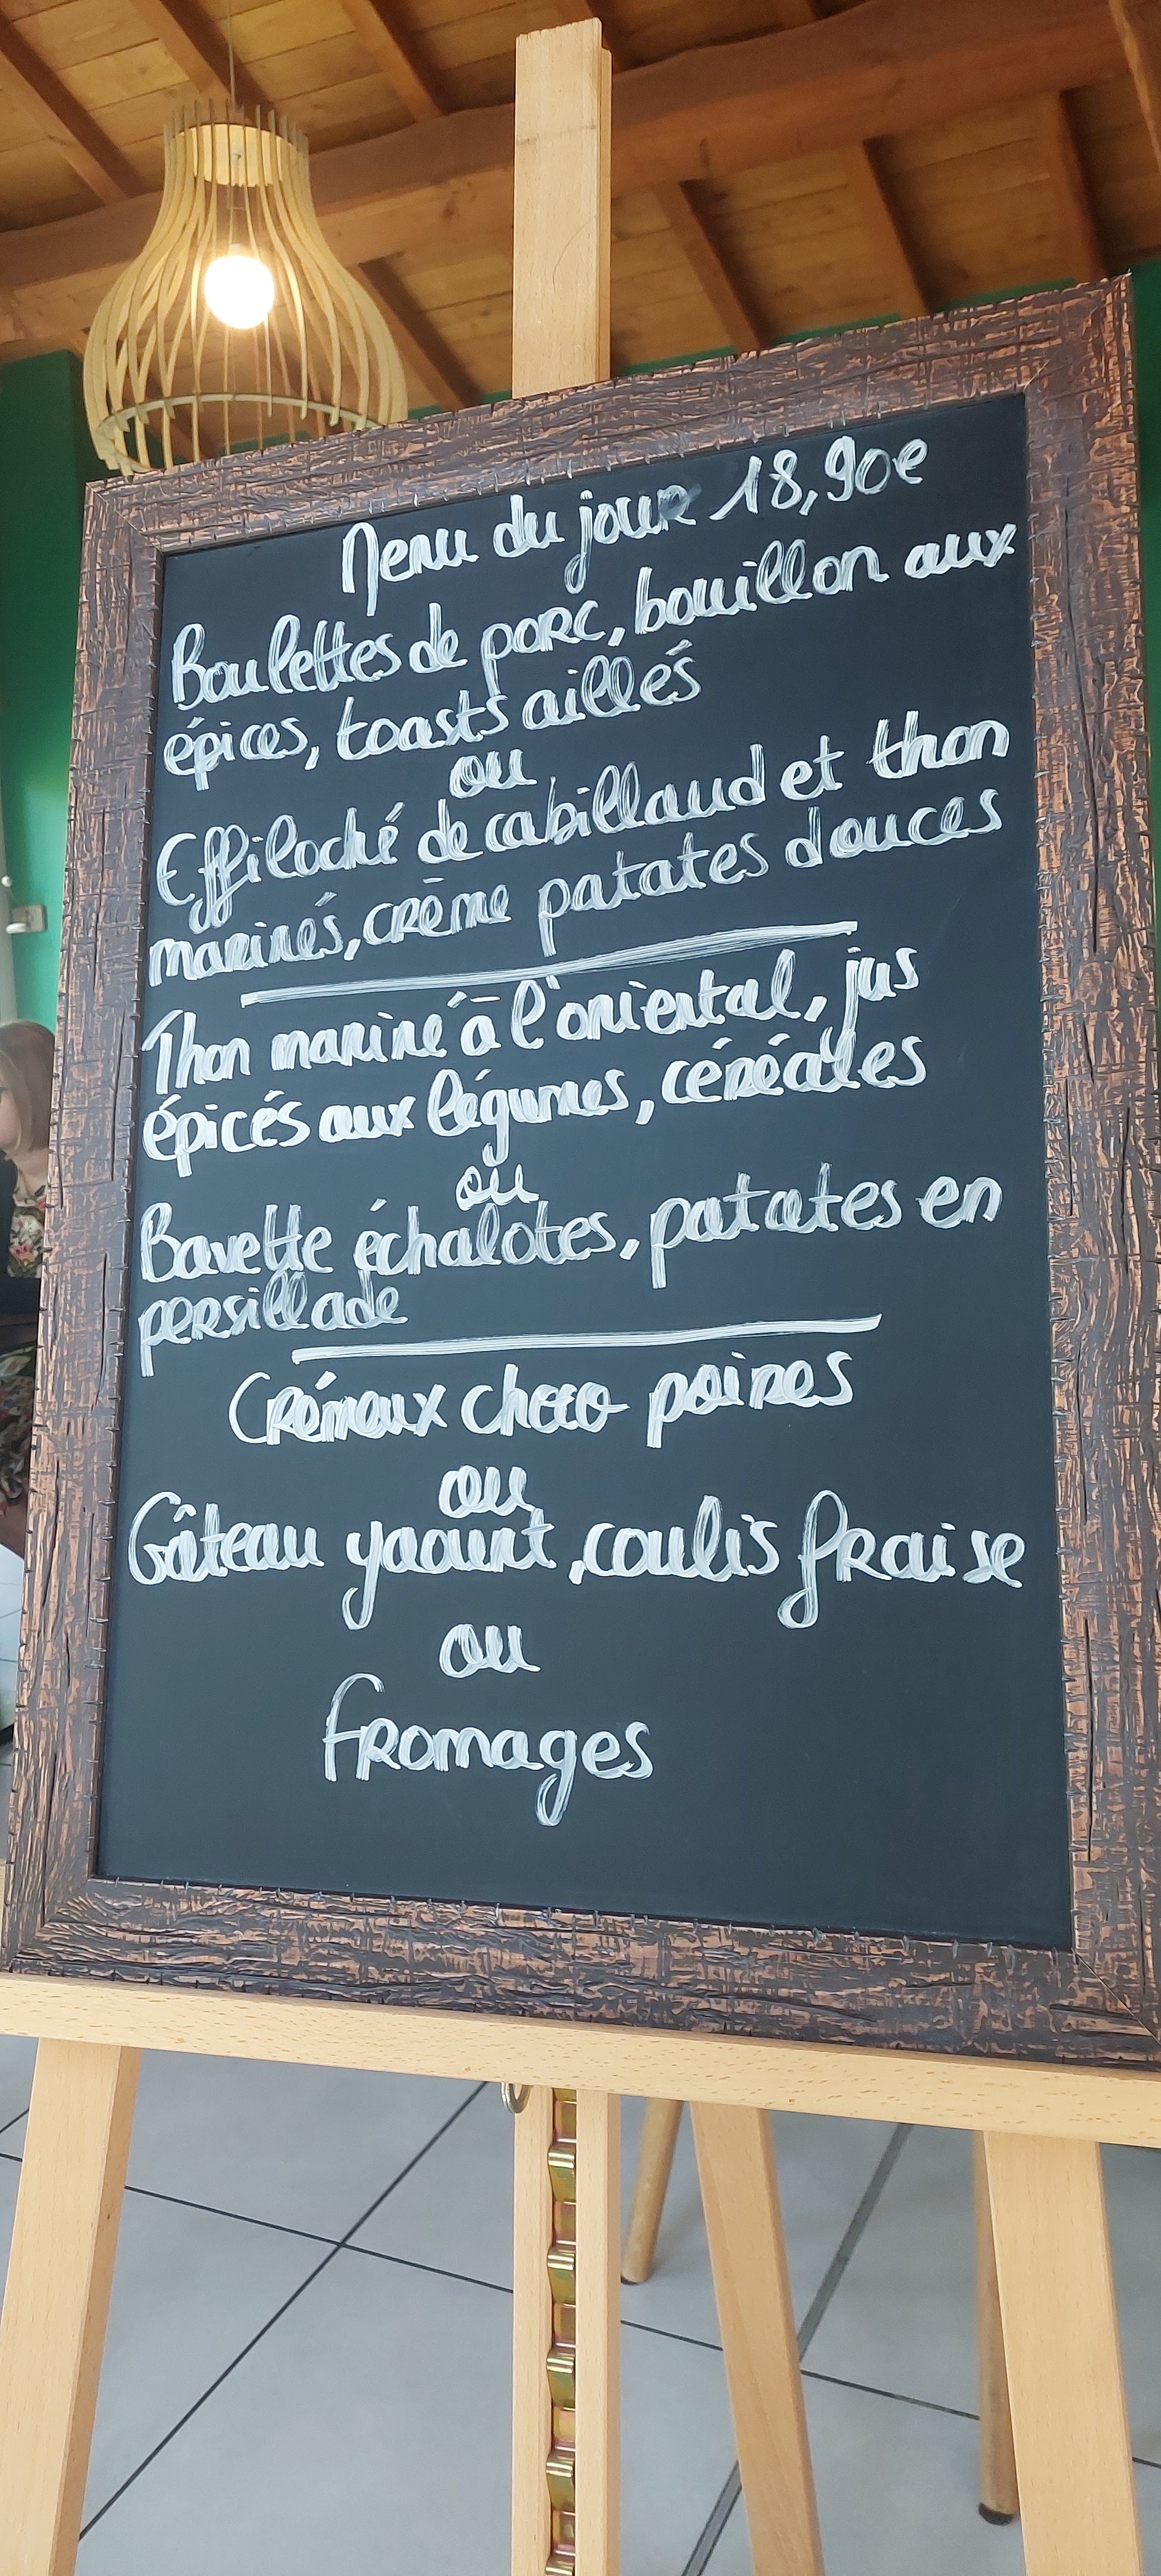 Menu du jour 18,90e
Boulettes de porc, bouillon aux
épices, toasts aillés
ou
Effiloché de cabillaud et thon
marinés, crème patates douces
Thon mariné à l'oriental, jus
épicés aux légumes, céréales
ou
Bavette échalotes, patates en
persillade
Crémeux choco poires
ou
Gâteau yaourt, coulis fraise
ou
fromages